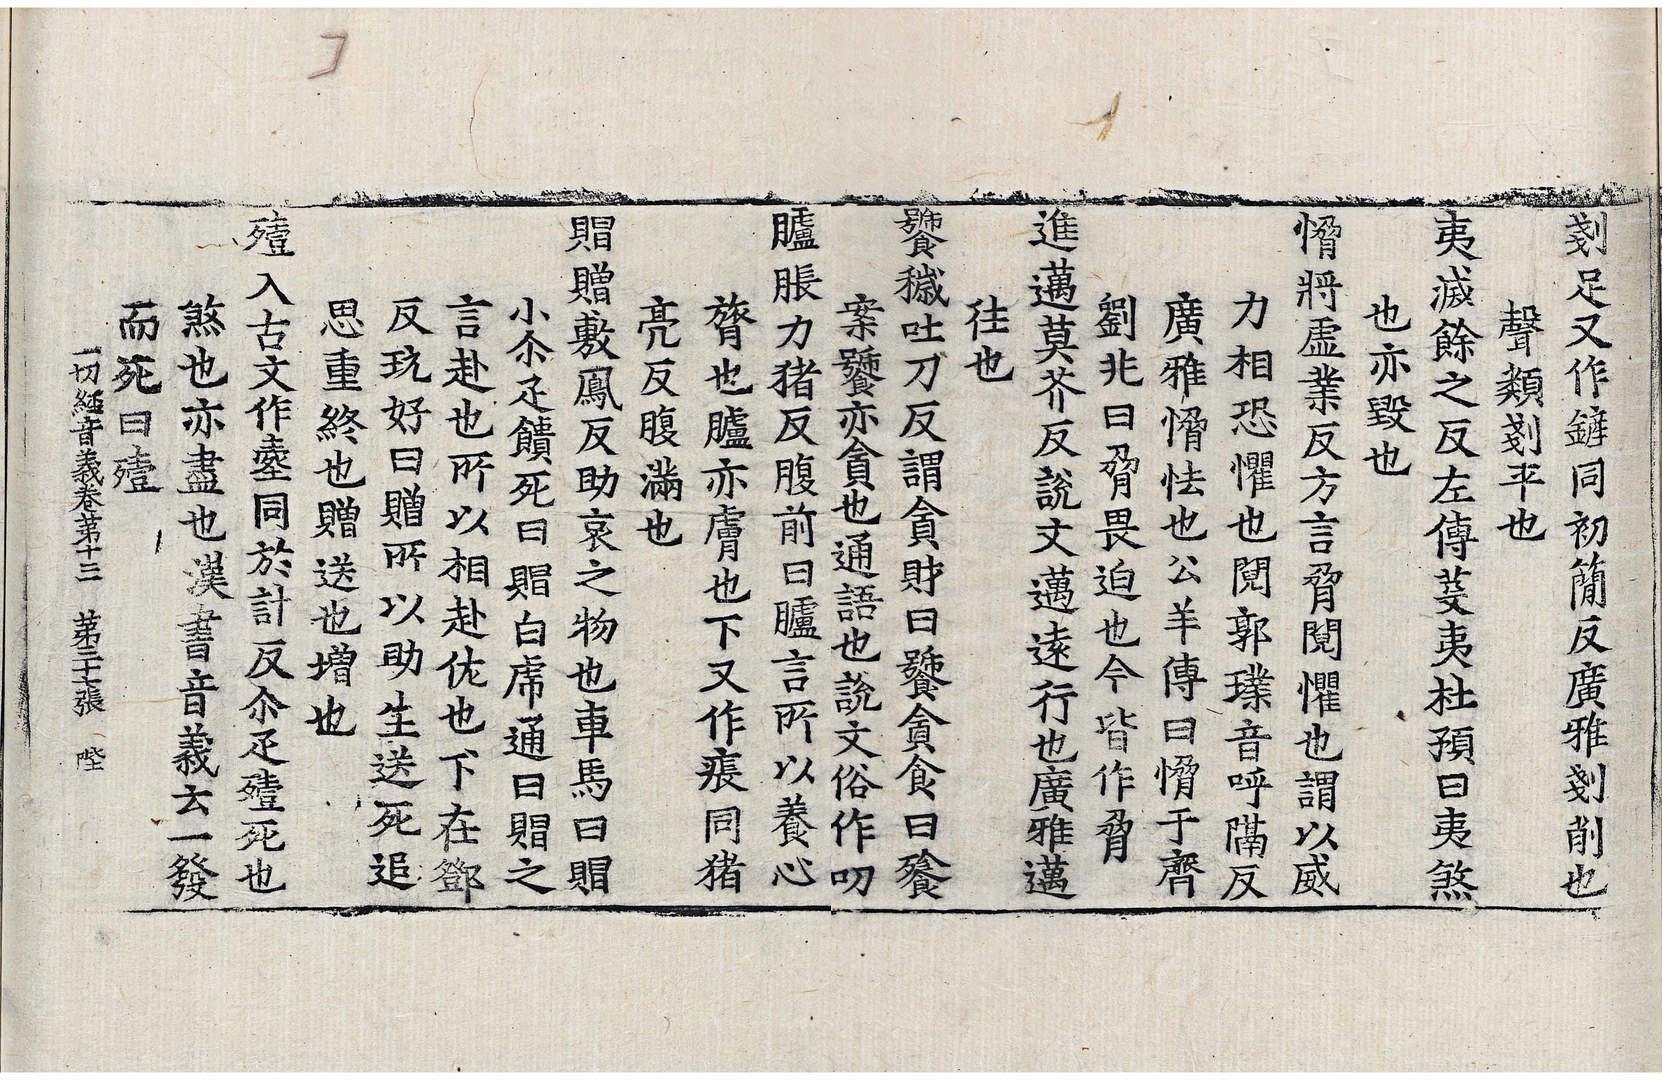 剗足又作鏟同初簡反廣雅剗削也
聲類剗平也
夷滅餘之反左傳芟夷杜預曰夷煞
也亦毀也
愶將虛業反方言脅閱懼也謂以威
力相恐懼也閱郭璞音呼隔反
廣雅愶怯也公羊傳曰愶于齊
劉兆曰脅畏迫也今皆作脅
進邁莫芥反說文邁遠行也廣雅邁
往也
饕穢吐刀反謂貪財曰饕貪食曰飻
案饕亦貪也通語也說文俗作叨
臚脹力猪反腹前曰臚言所以養心
膂也臚亦膚也下又作痮同猪
亮反腹滿也
賵贈敷鳳反助哀之物也車馬曰賵
小尒疋饋死曰賵白虎通曰賵之
言赴也所以相赴佐也下在鄧
反玩好曰贈所以助生送死追
思重終也贈送也增也
殪入古文作壼同於計反尒疋殪死也
煞也亦盡也漢書音義云一發
而死曰殪
一切經音義卷第十三 第三十七張 陛